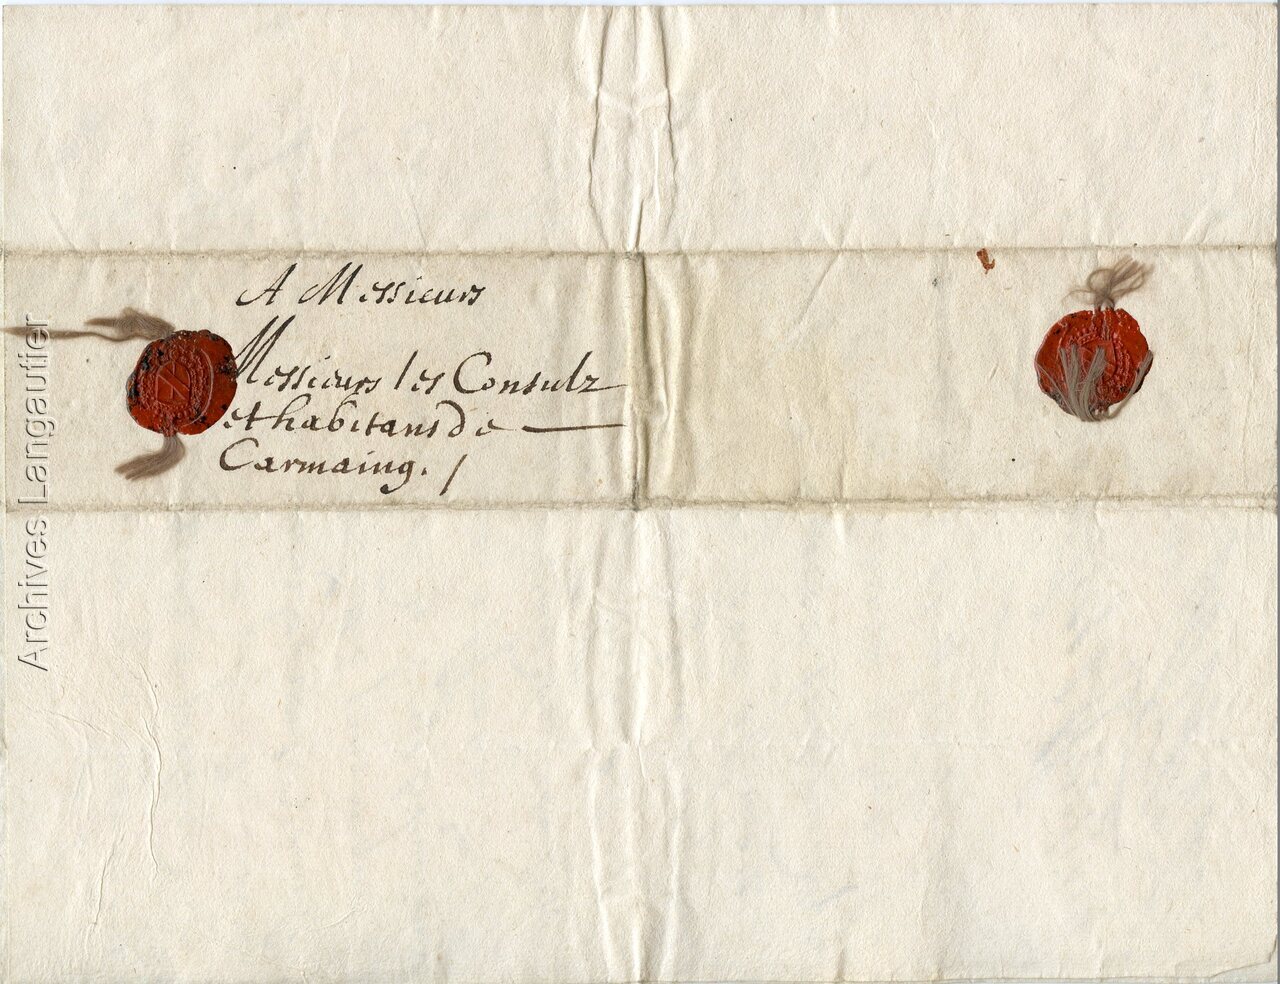 A Messieurs
Messieurs les Consulz
et habitans de
Carmaing. /
Archives Langautier